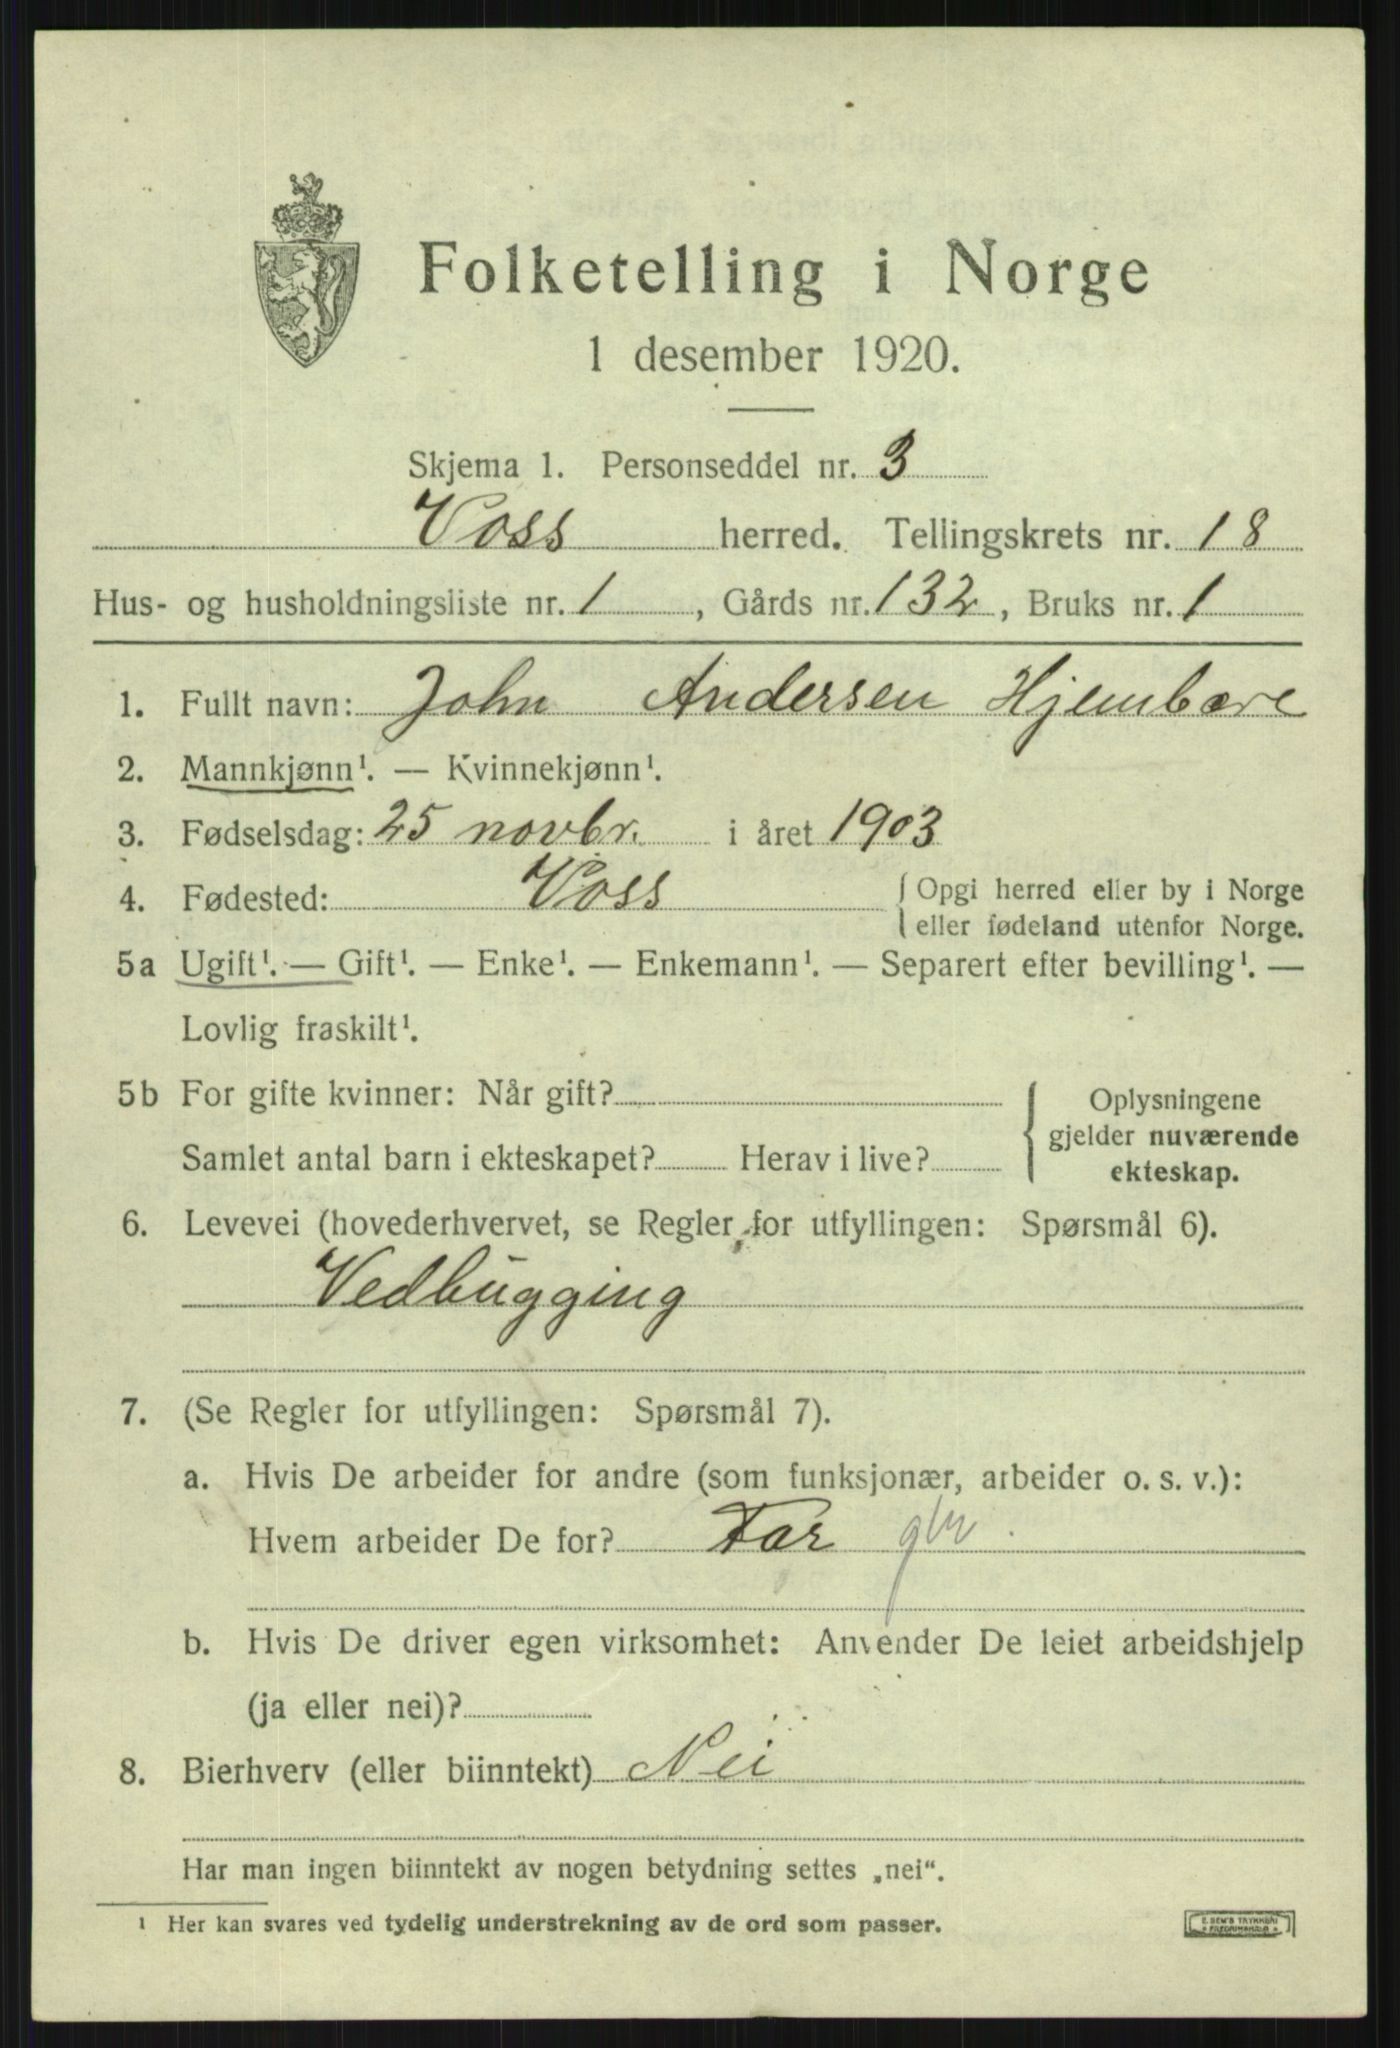 Folketelling i Norge
1 desember 1920.
Skjema 1. Personseddel nr. 3
Voss herred. Tellingskrets nr. 18
Hus- og husholdningsliste nr. 1, Gårds nr. 132, Bruks nr. 1
1. Fullt navn: John Andersen Hjembære
2. Mannkjønn¹. — Kvinnekjønn¹.
3. Fødselsdag: 25 novbr. i året 1903
4. Fødested: Voss { Opgi herred eller by i Norge
eller fødeland utenfor Norge.
5a Ugift¹. — Gift¹. — Enke¹. — Enkemann¹. — Separert efter bevilling¹. —
Lovlig fraskilt¹.
5b For gifte kvinner: Når gift?
Samlet antal barn i ekteskapet? Herav i live?
{ Oplysningene
gjelder nuværende
ekteskap.
6. Levevei (hovederhvervet, se Regler for utfyllingen: Spørsmål 6).
Vedhugging
7. (Se Regler for utfyllingen: Spørsmål 7).
a. Hvis De arbeider for andre (som funksjonær, arbeider o. s. v.):
Hvem arbeider De for? Far
b. Hvis De driver egen virksomhet: Anvender De leiet arbeidshjelp
(ja eller nei)?
8. Bierhverv (eller biinntekt) Nei
Har man ingen biinntekt av nogen betydning settes „nei“.
¹ Her kan svares ved tydelig understrekning av de ord som passer.